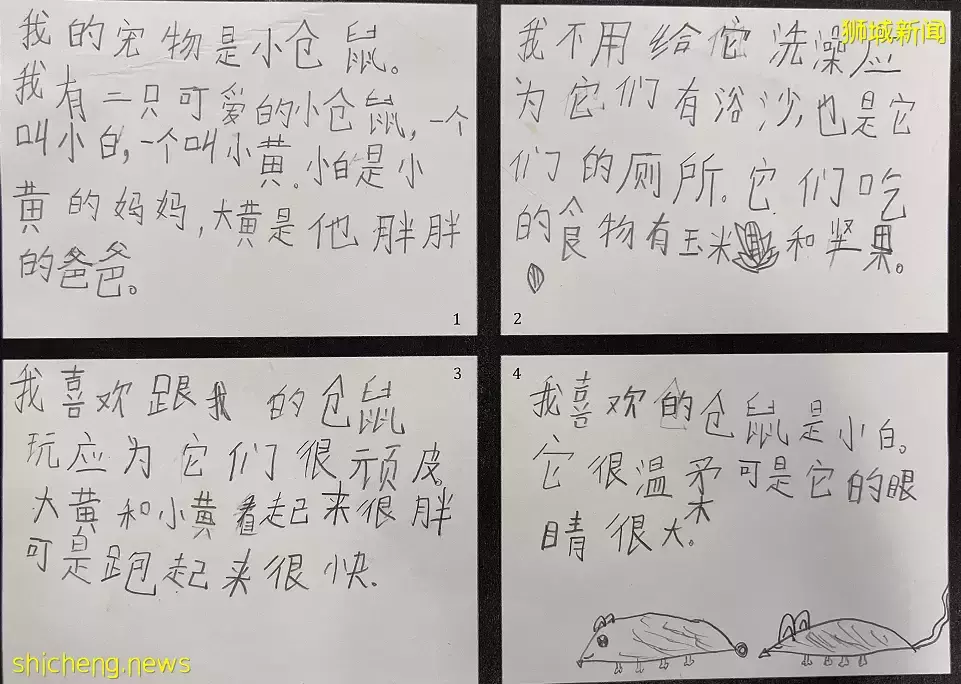 我的宠物是小仓鼠。
我有二只可爱的小仓鼠,一个
叫小白,一个叫小黄。小白是小
黄的妈妈,大黄是他胖胖
的爸爸。
1
狮城新闻
我不用给它洗澡应
为它们有浴沙,也是它
们的厕所。它们吃
的食物有玉米和坚果。
2
3
我喜欢跟我的仓鼠
玩应为它们很顽皮。
大黄和小黄看起来很胖
可是跑起来很快.
4
我喜欢的仓鼠是小白。
它很温柔可是它的眼
睛很大。
shicheng.news